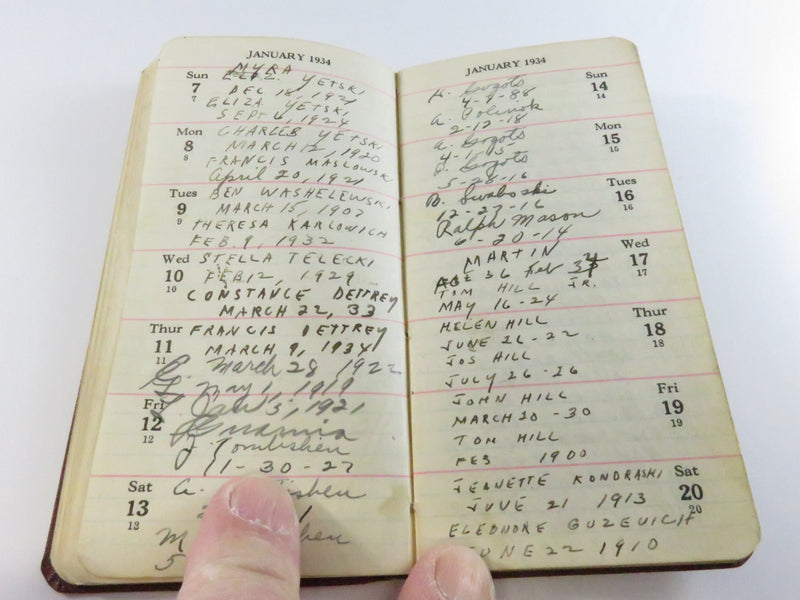 JANUARY 1934
Sun
7
7
MYRA
YETSKI
DEC 18, 1921
ELIZA YETSKI
SEPT 6, 1924
Mon
8
8
CHARLES YETSKI
MARCH 12, 1920
FRANCIS MASLOWSKI
April 20, 1921
Tues
9
9
BEN WASHELEWSKI
MARCH 15, 1907
THERESA KARLOWICH
FEB. 9, 1932
Wed
10
10
STELLA TELECKI
FEB 12, 1929
CONSTANCE DETTREY
MARCH 22, 33
Thur
11
11
FRANCIS DETTREY
MARCH 9, 1934
March 28 1922
May 1, 1919
Fri
12
12
Jan 5, 1921
11-30-27
Sat
13
13
JANUARY 1934
Sun
14
14
4-9-88
2-12-18
Mon
15
15
5-28-16
Tues
16
16
12-27-16
Ralph Mason
6-20-14
Wed
17
17
MARTIN
AGE 36 feb
TOM HILL JR.
MAY 16-24
Thur
18
18
HELEN HILL
JUNE 26-22
JOS HILL
JULY 26-26
Fri
19
19
JOHN HILL
MARCH 20-30
TOM HILL
FEB 1900
Sat
20
20
JEANETTE KONDRASKI
JUNE 21 1913
ELEONORE GUZEVICH
JUNE 22 1910